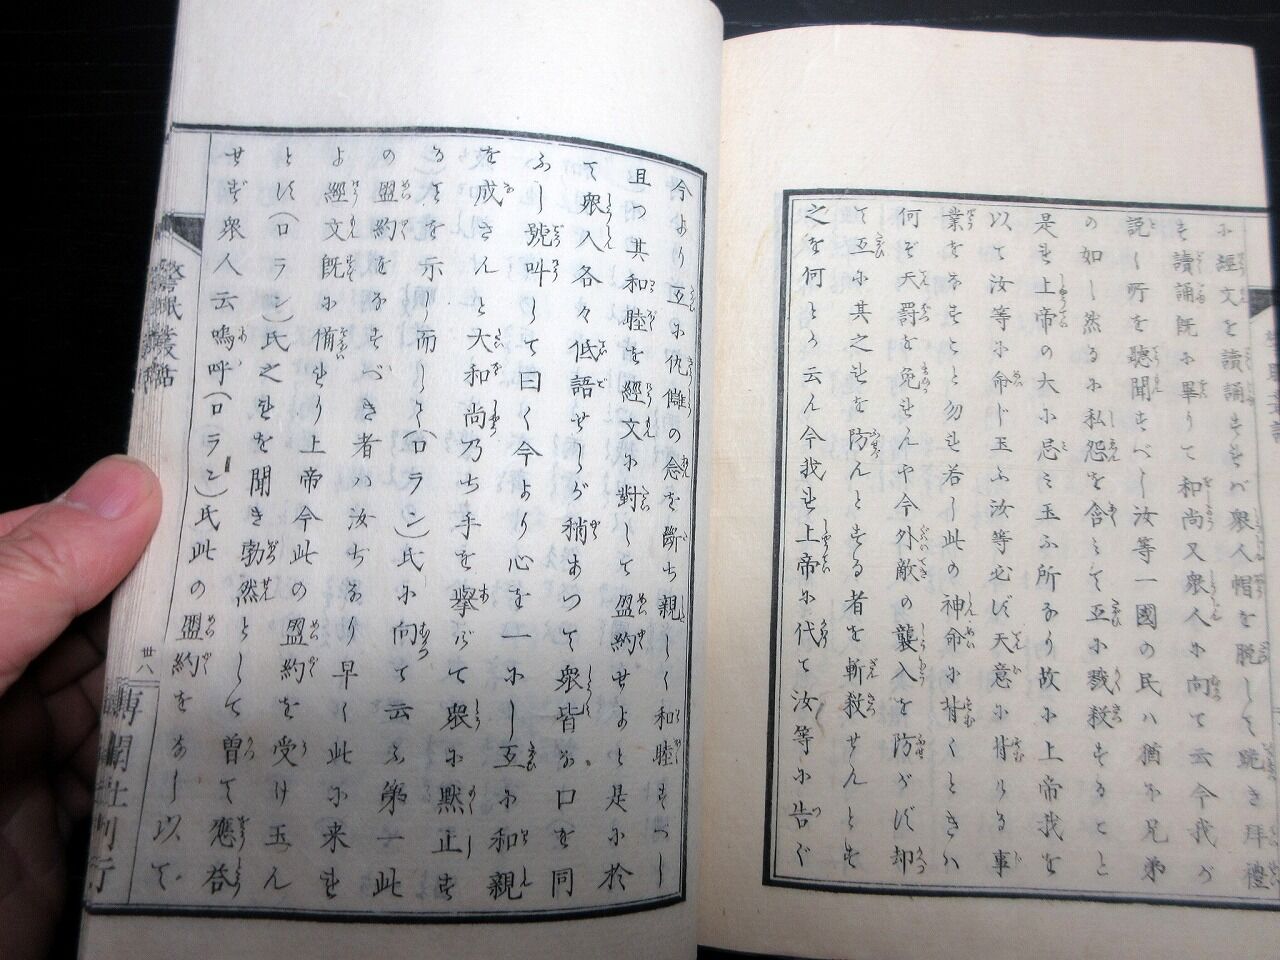 に經文を讀誦すれバ衆人帽を脱して跪き拜禮
す讀誦既に畢りて和尚又衆人に向て云今我が
説く所を聴聞すべし汝等一國の民ハ猶ほ兄弟
の如し然るに私怨を含ミて互に戮殺すること
是れ上帝の大に忌ミ玉ふ所なり故に上帝我を
以て汝等に命じ玉ふ汝等必ず天意に背ける事
業をなすこと勿れ若し此の神命に背くときハ
何ぞ天罰を免れんや今外敵の襲入を防がず却
て互に其之れを防んとする者を斬殺せんとす
之を何とか云ん今我れ上帝に代て汝等に告ぐ
今より互に仇讎の念を断ち親しく和睦すべし
且つ其和睦を經文に對して盟約せよと是に於
て衆人各々低語せしが稍あつて衆皆な口を同
ふし號叫して曰く今より心を一にし互に和親
を成さんと大和尚乃ち手を擧げて衆に黙止す
るを示し而して(ロラン)氏に向て云ふ第一此
の盟約をなすべき者ハ汝ぢなり早く此に来れ
よ經文既に備れり上帝今此の盟約を受け玉ん
とす(ロラン)氏之れを聞き勃然として曽て應答
せず衆人云嗚呼(ロラン)氏此の盟約をなし以て
警眠叢話
卅八
専聞社刊行